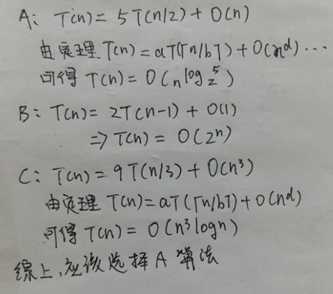 A: T(n) = 5T(n/2) + O(n)
由定理 T(n) = aT(⌈n/b⌉) + O(n^d) ...
可得 T(n) = O(n^log₂5)
B: T(n) = 2T(n-1) + O(1)
⇒ T(n) = O(2^n)
C: T(n) = 9T(n/3) + O(n^3)
由定理 T(n) = aT(⌈n/b⌉) + O(n^d)
可得 T(n) = O(n^3 logn)
综上,应该选择A算法